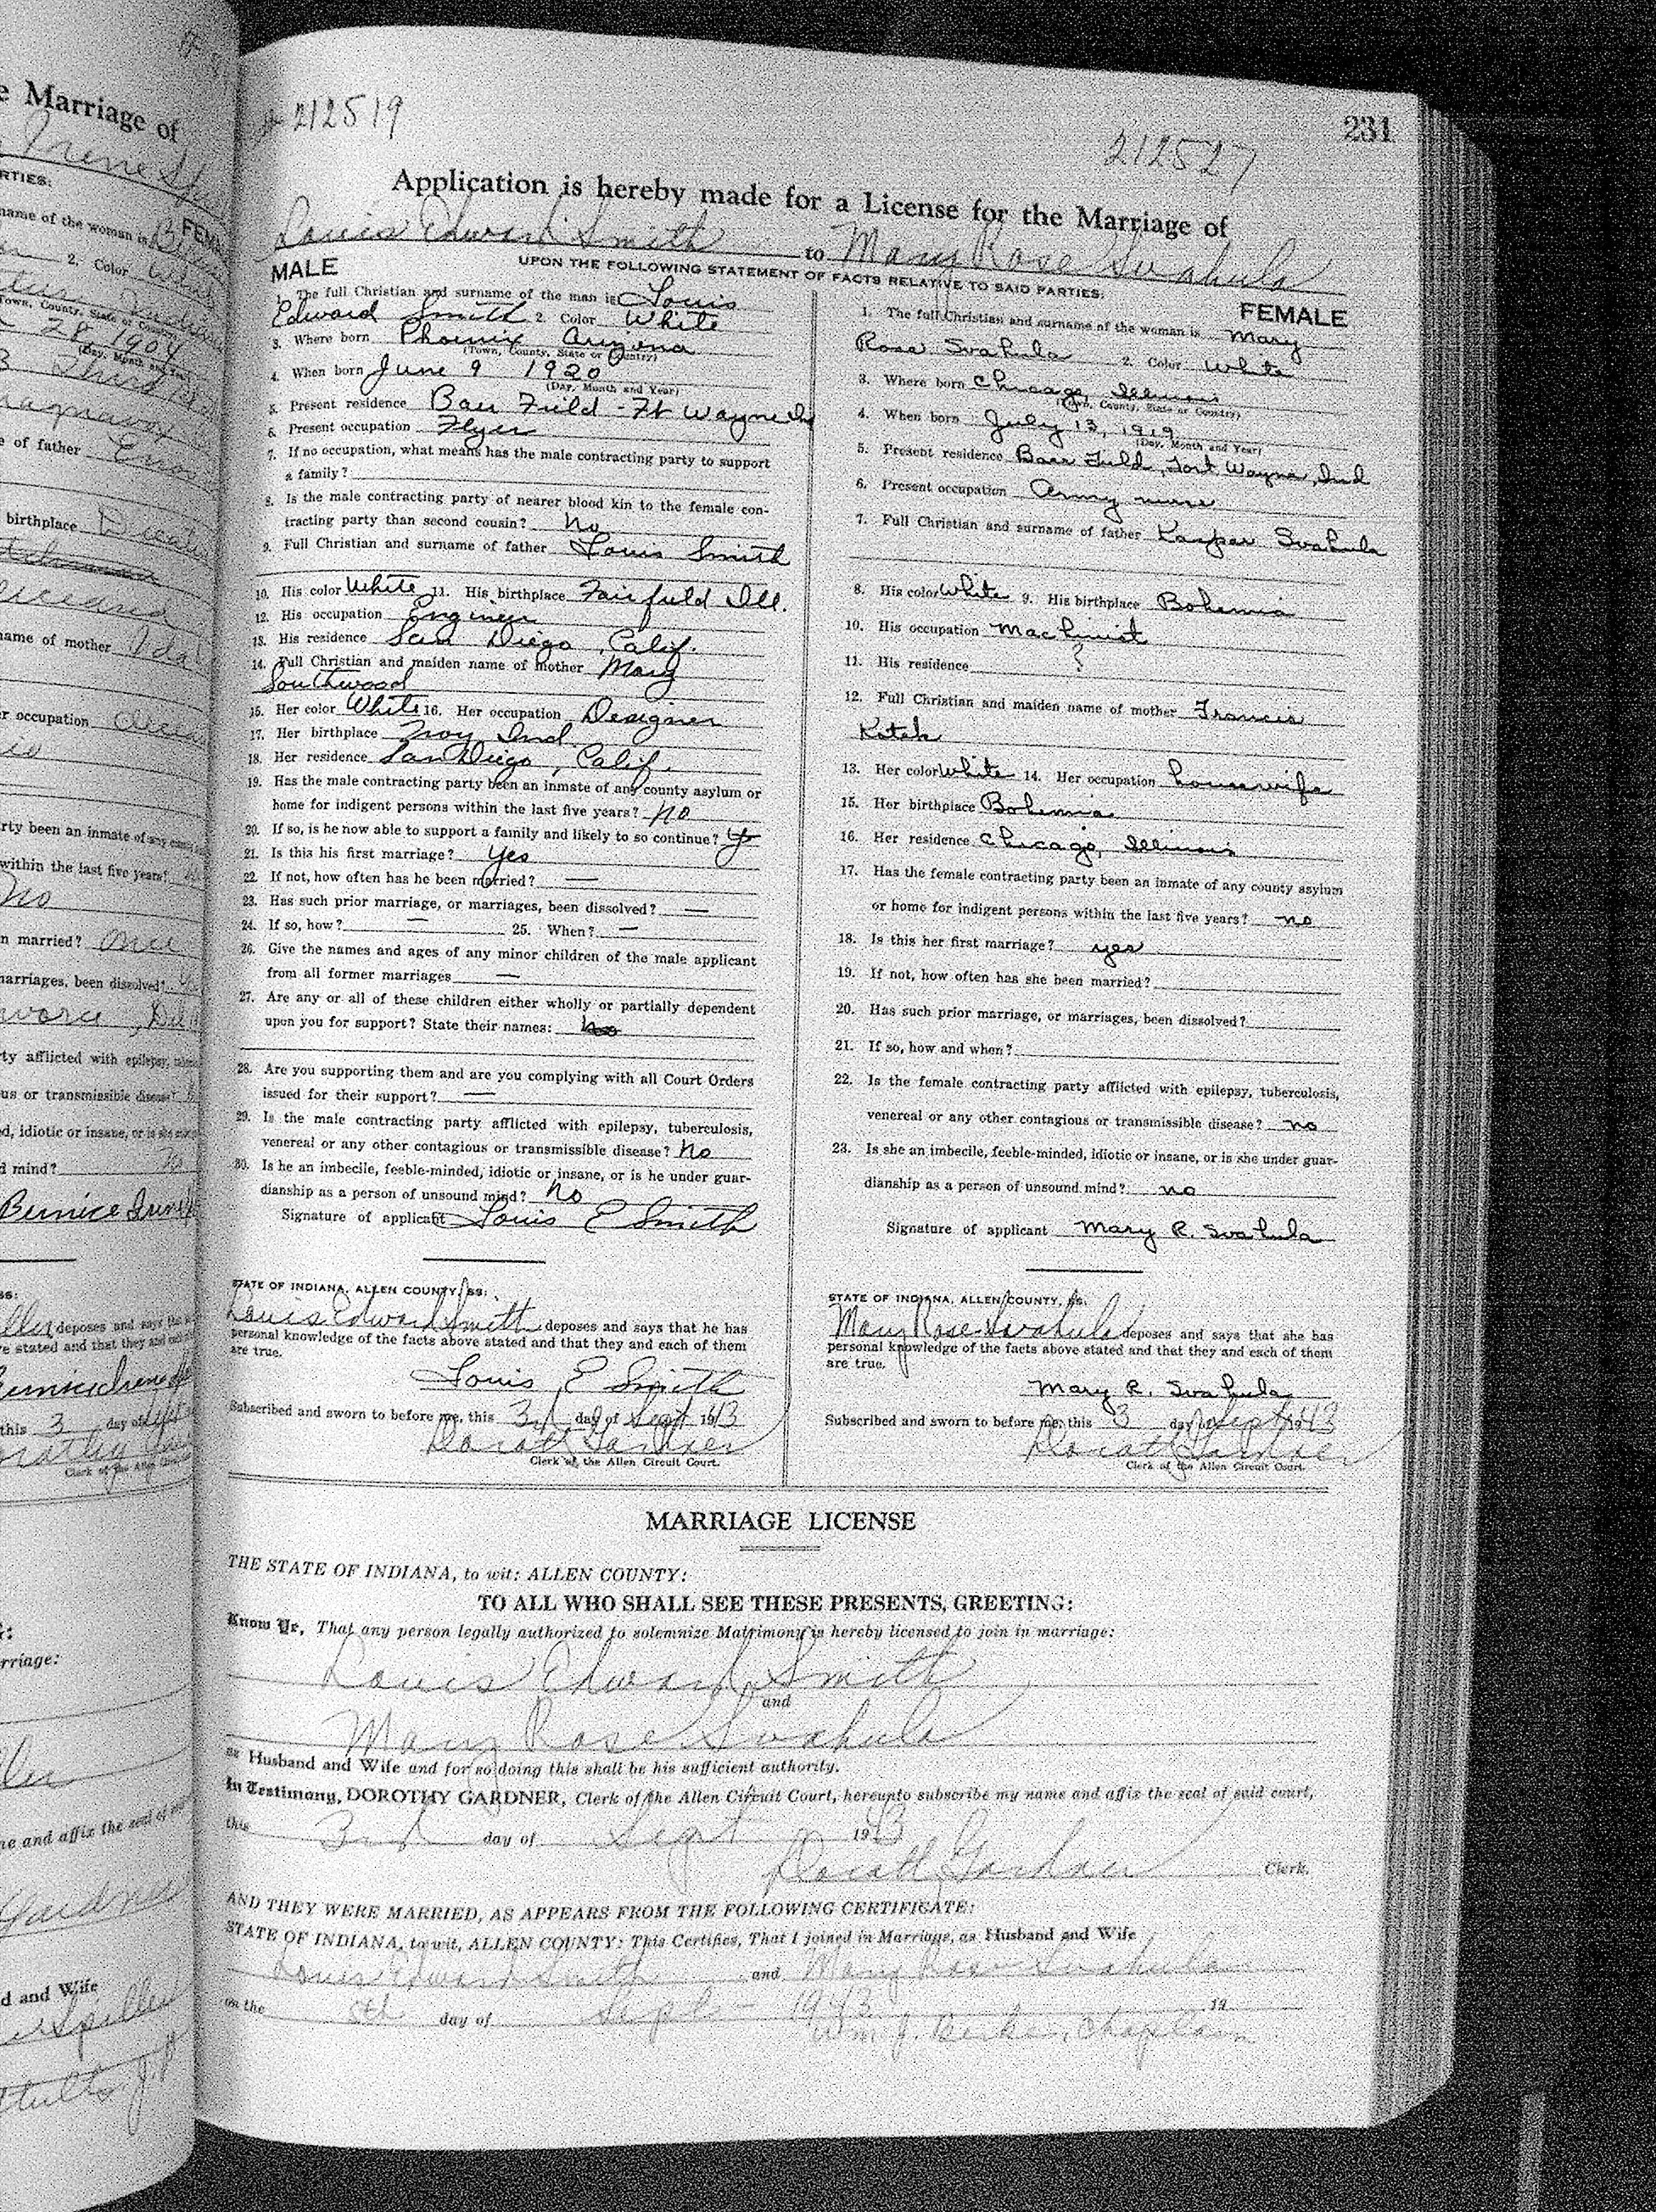 e Marriage of
Irene
RTIES:
FEM
name of the woman is
2. Color White
Indiana
Town, County, State or Country
28, 1904
(Day, Month and Year)
e of father
birthplace
name of mother Ida
r occupation
rty been an inmate of any
within the last five years?
no
n married? once
marriages, been dissolved?
ivorce,
ty afflicted with epilepsy,
us or transmissible disease?
d, idiotic or insane, or is she
d mind? no
Bernice
ss:
deposes and says
e stated and that they and
this 3 day of
Clerk of the Allen
rriage:
ne and affix the seal of
Gardner
d and Wife
J.P.
212519
231
212527
Application is hereby made for a License for the Marriage of
Louis Edward Smith to Mary Rose Svahula
UPON THE FOLLOWING STATEMENT OF FACTS RELATIVE TO SAID PARTIES:
MALE
1. The full Christian and surname of the man is Louis
Edward Smith 2. Color White
3. Where born Phoenix Arizona
(Town, County, State or Country)
4. When born June 9 1920
(Day, Month and Year)
5. Present residence Baer Field - Ft Wayne Ind
6. Present occupation Flyer
7. If no occupation, what means has the male contracting party to support
a family?
8. Is the male contracting party of nearer blood kin to the female con-
tracting party than second cousin? no
9. Full Christian and surname of father Louis Smith
10. His color White 11. His birthplace Fairfield Ill.
12. His occupation Engineer
13. His residence San Diego, Calif.
14. Full Christian and maiden name of mother Mary
Southwood
15. Her color White 16. Her occupation Designer
17. Her birthplace Troy Ind.
18. Her residence San Diego, Calif.
19. Has the male contracting party been an inmate of any county asylum or
home for indigent persons within the last five years? no
20. If so, is he now able to support a family and likely to so continue? yes
21. Is this his first marriage? yes
22. If not, how often has he been married? —
23. Has such prior marriage, or marriages, been dissolved? —
24. If so, how? — 25. When? —
26. Give the names and ages of any minor children of the male applicant
from all former marriages —
27. Are any or all of these children either wholly or partially dependent
upon you for support? State their names: no
28. Are you supporting them and are you complying with all Court Orders
issued for their support? —
29. Is the male contracting party afflicted with epilepsy, tuberculosis,
venereal or any other contagious or transmissible disease? no
30. Is he an imbecile, feeble-minded, idiotic or insane, or is he under guar-
dianship as a person of unsound mind? no
Signature of applicant Louis E Smith
STATE OF INDIANA, ALLEN COUNTY, SS:
Louis Edward Smith deposes and says that he has
personal knowledge of the facts above stated and that they and each of them
are true.
Louis E Smith
Subscribed and sworn to before me, this 3rd day of Sept 1943
Doroth Gardner
Clerk of the Allen Circuit Court.
FEMALE
1. The full Christian and surname of the woman is Mary
Rose Svahula 2. Color White
3. Where born Chicago, Illinois
(Town, County, State or Country)
4. When born July 13, 1919
(Day, Month and Year)
5. Present residence Baer Field, Fort Wayne, Ind
6. Present occupation Army nurse
7. Full Christian and surname of father Kaspar Svahula
8. His color White 9. His birthplace Bohemia
10. His occupation Machinist
11. His residence ?
12. Full Christian and maiden name of mother Francis
Kotek
13. Her color White 14. Her occupation housewife
15. Her birthplace Bohemia
16. Her residence Chicago, Illinois
17. Has the female contracting party been an inmate of any county asylum
or home for indigent persons within the last five years? no
18. Is this her first marriage? yes
19. If not, how often has she been married?
20. Has such prior marriage, or marriages, been dissolved?
21. If so, how and when?
22. Is the female contracting party afflicted with epilepsy, tuberculosis,
venereal or any other contagious or transmissible disease? no
23. Is she an imbecile, feeble-minded, idiotic or insane, or is she under guar-
dianship as a person of unsound mind? no
Signature of applicant Mary R. Svahula
STATE OF INDIANA, ALLEN COUNTY, SS:
Mary Rose Svahula deposes and says that she has
personal knowledge of the facts above stated and that they and each of them
are true.
Mary R. Svahula
Subscribed and sworn to before me, this 3 day of Sept 1943
Doroth Gardner
Clerk of the Allen Circuit Court.
MARRIAGE LICENSE
THE STATE OF INDIANA, to wit: ALLEN COUNTY:
TO ALL WHO SHALL SEE THESE PRESENTS, GREETING:
Know Ye, That any person legally authorized to solemnize Matrimony is hereby licensed to join in marriage:
Louis Edward Smith
and
Mary Rose Svahula
as Husband and Wife and for so doing this shall be his sufficient authority.
In Testimony, DOROTHY GARDNER, Clerk of the Allen Circuit Court, hereunto subscribe my name and affix the seal of said court,
this 3rd day of Sept 1943
Doroth Gardner Clerk.
AND THEY WERE MARRIED, AS APPEARS FROM THE FOLLOWING CERTIFICATE:
STATE OF INDIANA, to wit, ALLEN COUNTY: This Certifies, That I joined in Marriage, as Husband and Wife
Louis Edward Smith and Mary Rose Svahula
on the day of Sept- 1943 19
Wm. J. Chaplain